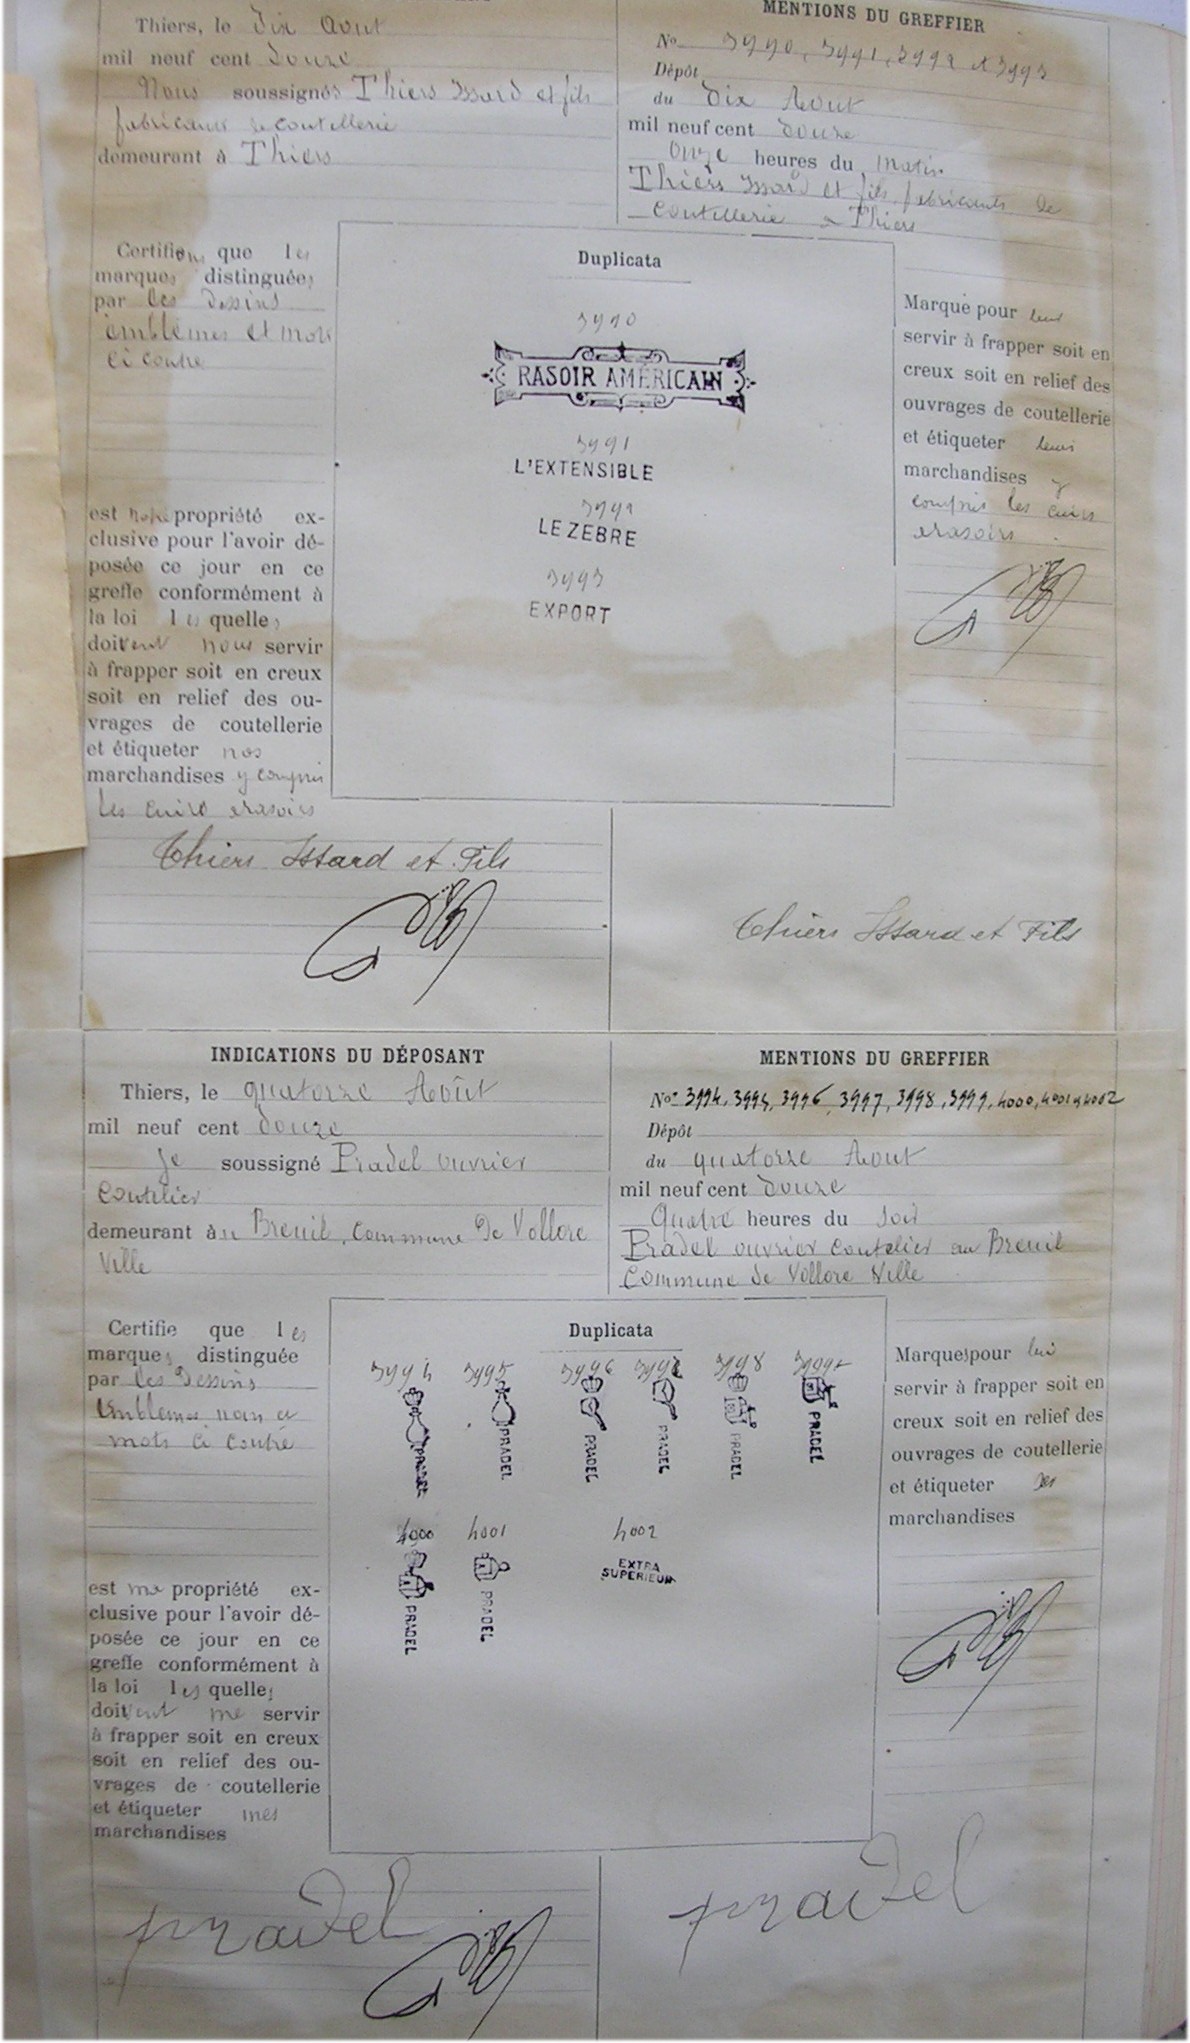 Thiers, le Dix Aout
mil neuf cent Douze
Nous soussignés Thiers Issard et fils
fabricants de coutellerie
demeurant à Thiers
MENTIONS DU GREFFIER
Nos 3990, 3991, 3992 et 3993
Dépôt
du Dix Aout
mil neuf cent douze
Onze heures du matin
Thiers Issard et fils fabricants de
coutellerie a Thiers
Certifions que les
marques distinguées
par les Dessins
emblèmes et mots
ci contre
est notre propriété ex-
clusive pour l'avoir dé-
posée ce jour en ce
greffe conformément à
la loi lesquelles
doivent nous servir
à frapper soit en creux
soit en relief des ou-
vrages de coutellerie
et étiqueter nos
marchandises y compris
les cuirs a rasoirs
Duplicata
3990
RASOIR AMÉRICAIN
3991
L'EXTENSIBLE
3992
LE ZEBRE
3993
EXPORT
Marque pour leur
servir à frapper soit en
creux soit en relief des
ouvrages de coutellerie
et étiqueter leurs
marchandises y
compris les cuirs
a rasoirs.
Thiers Issard et Fils
Thiers Issard et Fils
INDICATIONS DU DÉPOSANT
Thiers, le quatorze Août
mil neuf cent douze
Je soussigné Pradel ouvrier
coutelier
demeurant au Breuil, Commune de Vollore
Ville
MENTIONS DU GREFFIER
Nos 3994, 3995, 3996, 3997, 3998, 3999, 4000, 4001 et 4002
Dépôt
du quatorze Aout
mil neuf cent douze
Quatre heures du soir
Pradel ouvrier coutelier au Breuil
Commune de Vollore Ville
Certifie que les
marques distinguée
par les Dessins
Emblemes nom et
mots ci contre
est ma propriété ex-
clusive pour l'avoir dé-
posée ce jour en ce
greffe conformément à
la loi lesquelles
doivent me servir
à frapper soit en creux
soit en relief des ou-
vrages de coutellerie
et étiqueter mes
marchandises
Duplicata
3994 3995 3996 3997 3998 3999
PRADEL PRADEL PRADEL PRADEL PRADEL PRADEL
4000 4001 4002
PRADEL PRADEL EXTRA
SUPERIEUR
Marques pour lui
servir à frapper soit en
creux soit en relief des
ouvrages de coutellerie
et étiqueter ses
marchandises
pradel
pradel